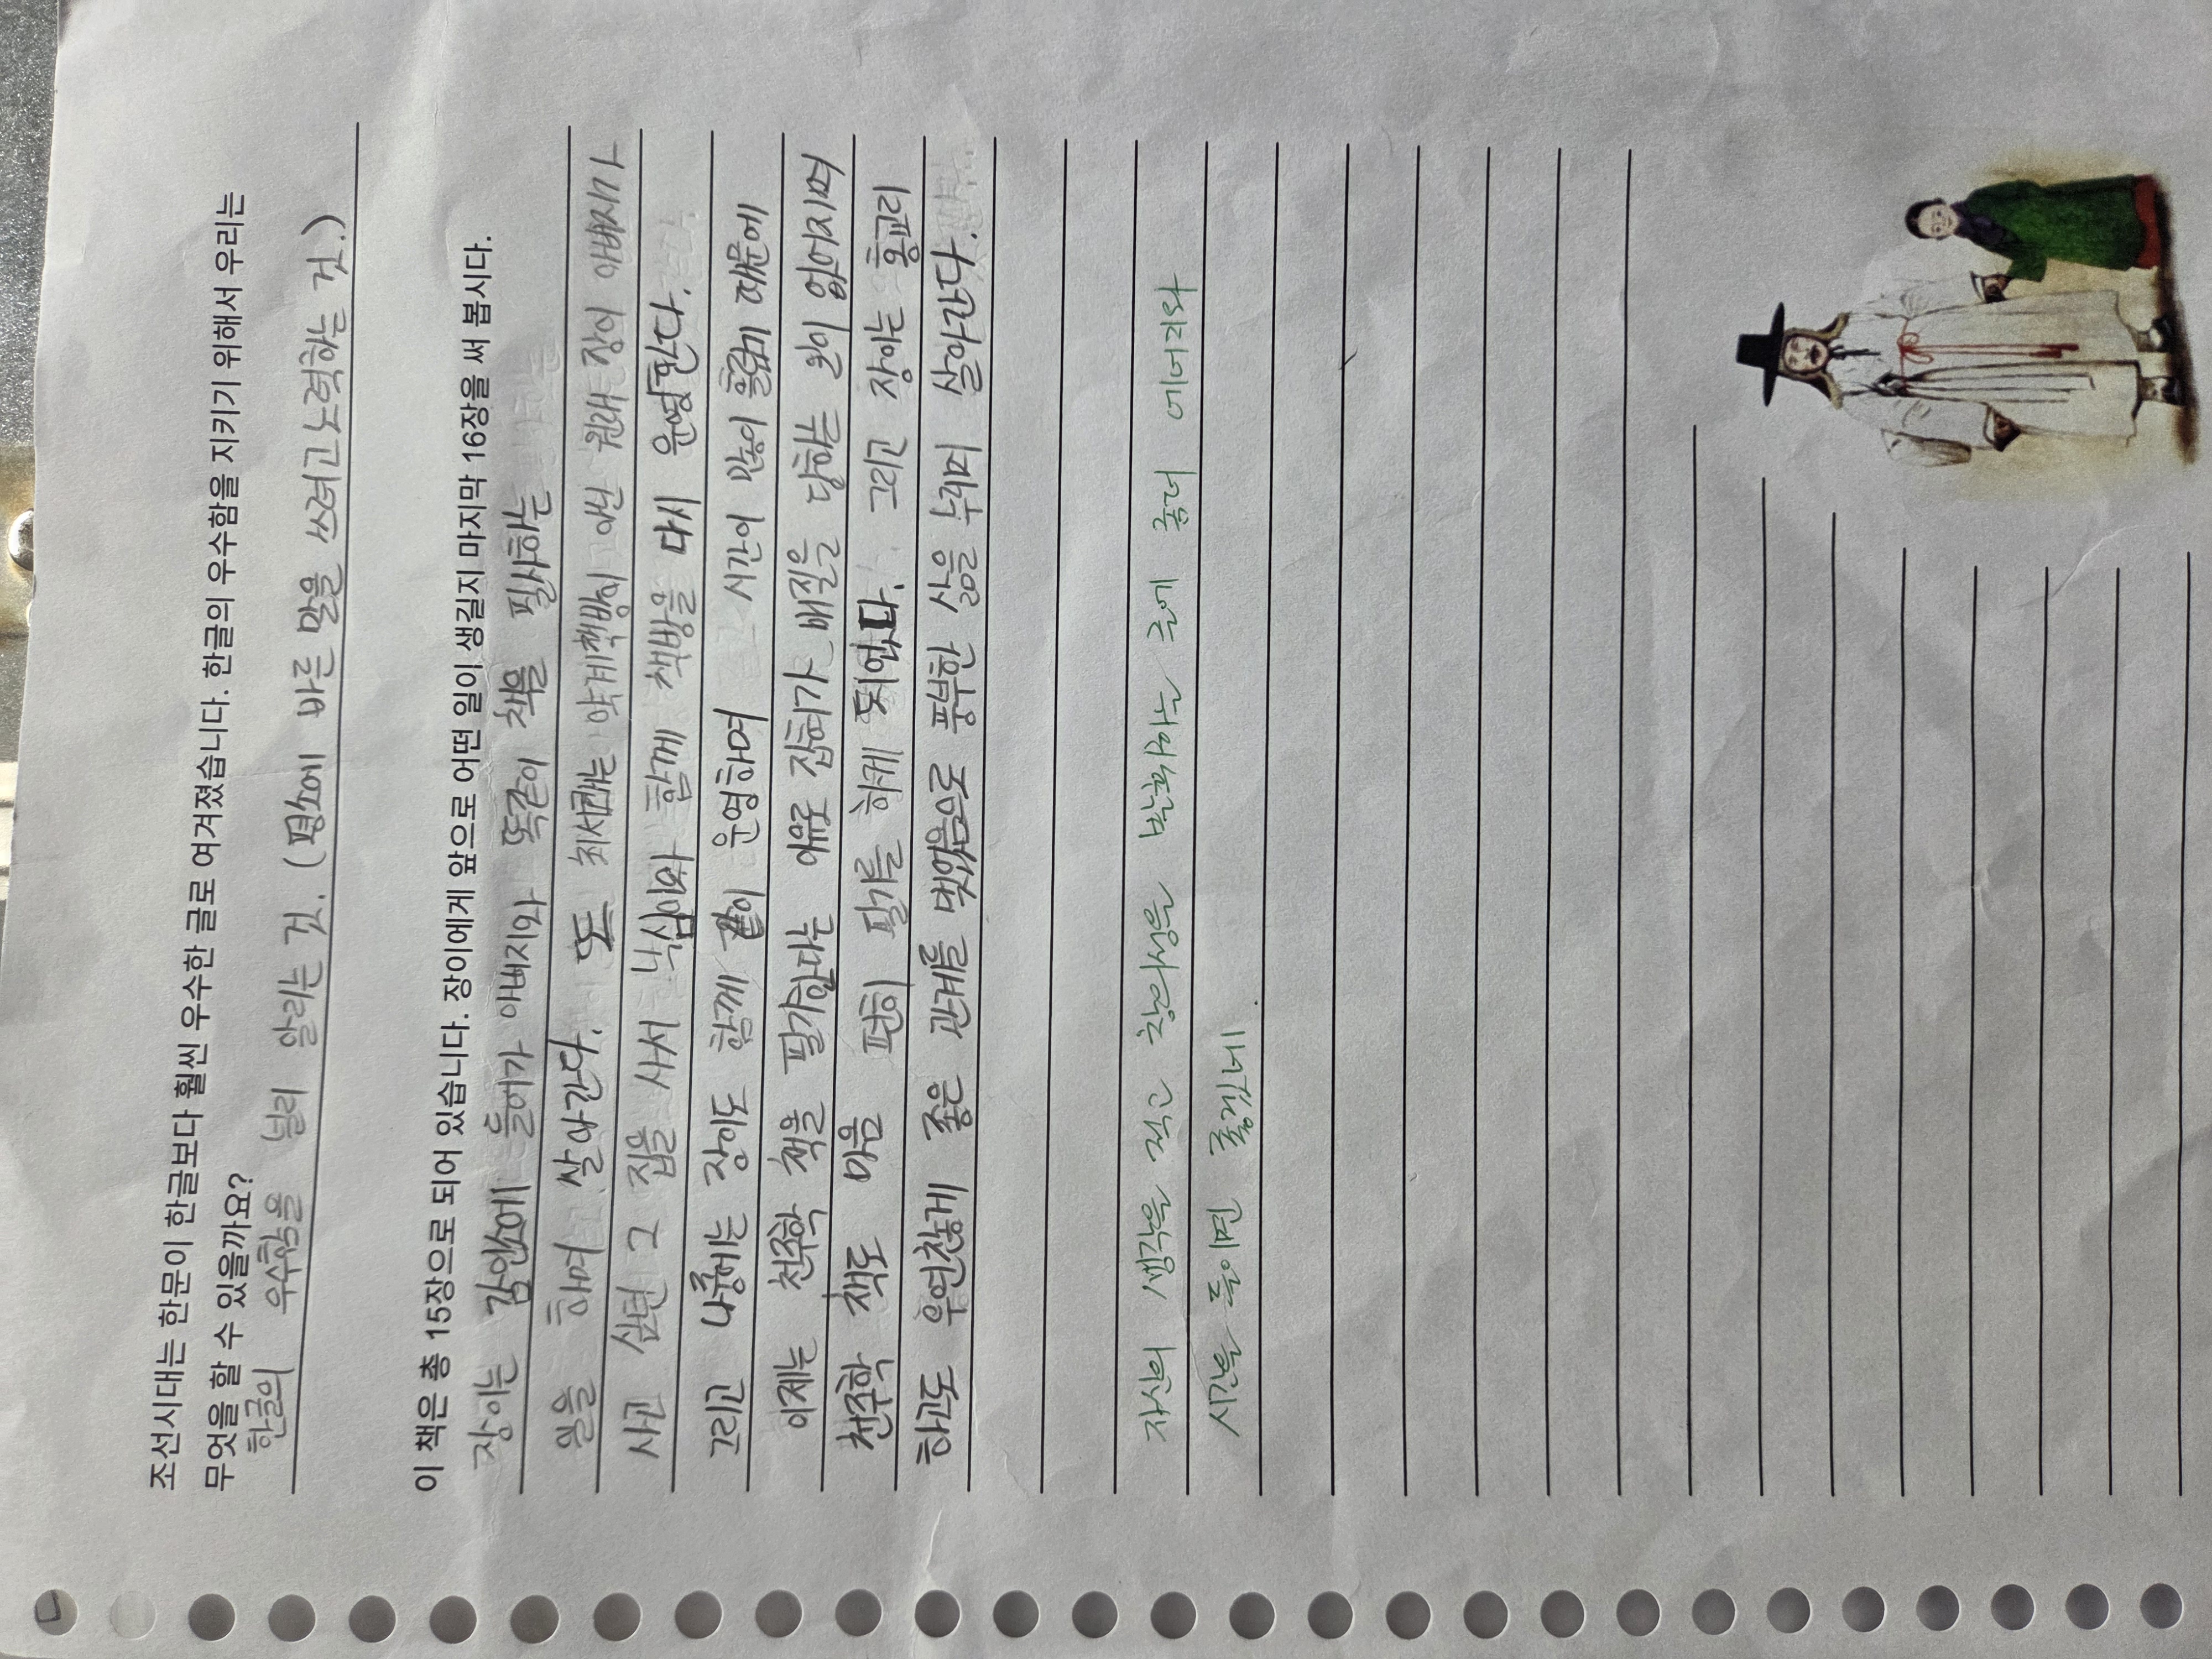 조선시대는 한문이 한글보다 훨씬 우수한 글로 여겨졌습니다. 한글의 우수함을 지키기 위해서 우리는
무엇을 할 수 있을까요?
한글의 우수함을 널리 알리는 것. (평소에 바른 말을 쓰려고 노력하는 것.)
이 책은 총 15장으로 되어 있습니다. 장이에게 앞으로 어떤 일이 생길지 마지막 16장을 써 봅시다.
장이는 감인소에 들어가 아버지와 똑같이 책을 필사하는
일을 하며 쌀아간다. 또 최서쾌는 약계책방이 아닌 원래 장이 아빠지가
사고 싶던 그 집을 사서 낙심이와 함께 책방을 다시 운영한다.
그리고 나중에는 장이도 함께 같이 운영하며 시간이 많이 흘렀기 때문에
이제는 천주학 책을 필가한다는 이유로 잡혀가 매질을 당하는 일이 없어지며
천주학 책도 마음 편히 필기를 하게 되었다. 그리고 장이는 홍교리
하고도 우연찮게 좋은 관계를 맺었음으로 풍부한 삶을 누리며 살아간다.
자신의 생각을 적고 창의성을 발휘하는 곳에 좀더 에너지와
시간을 들이면 좋겠네